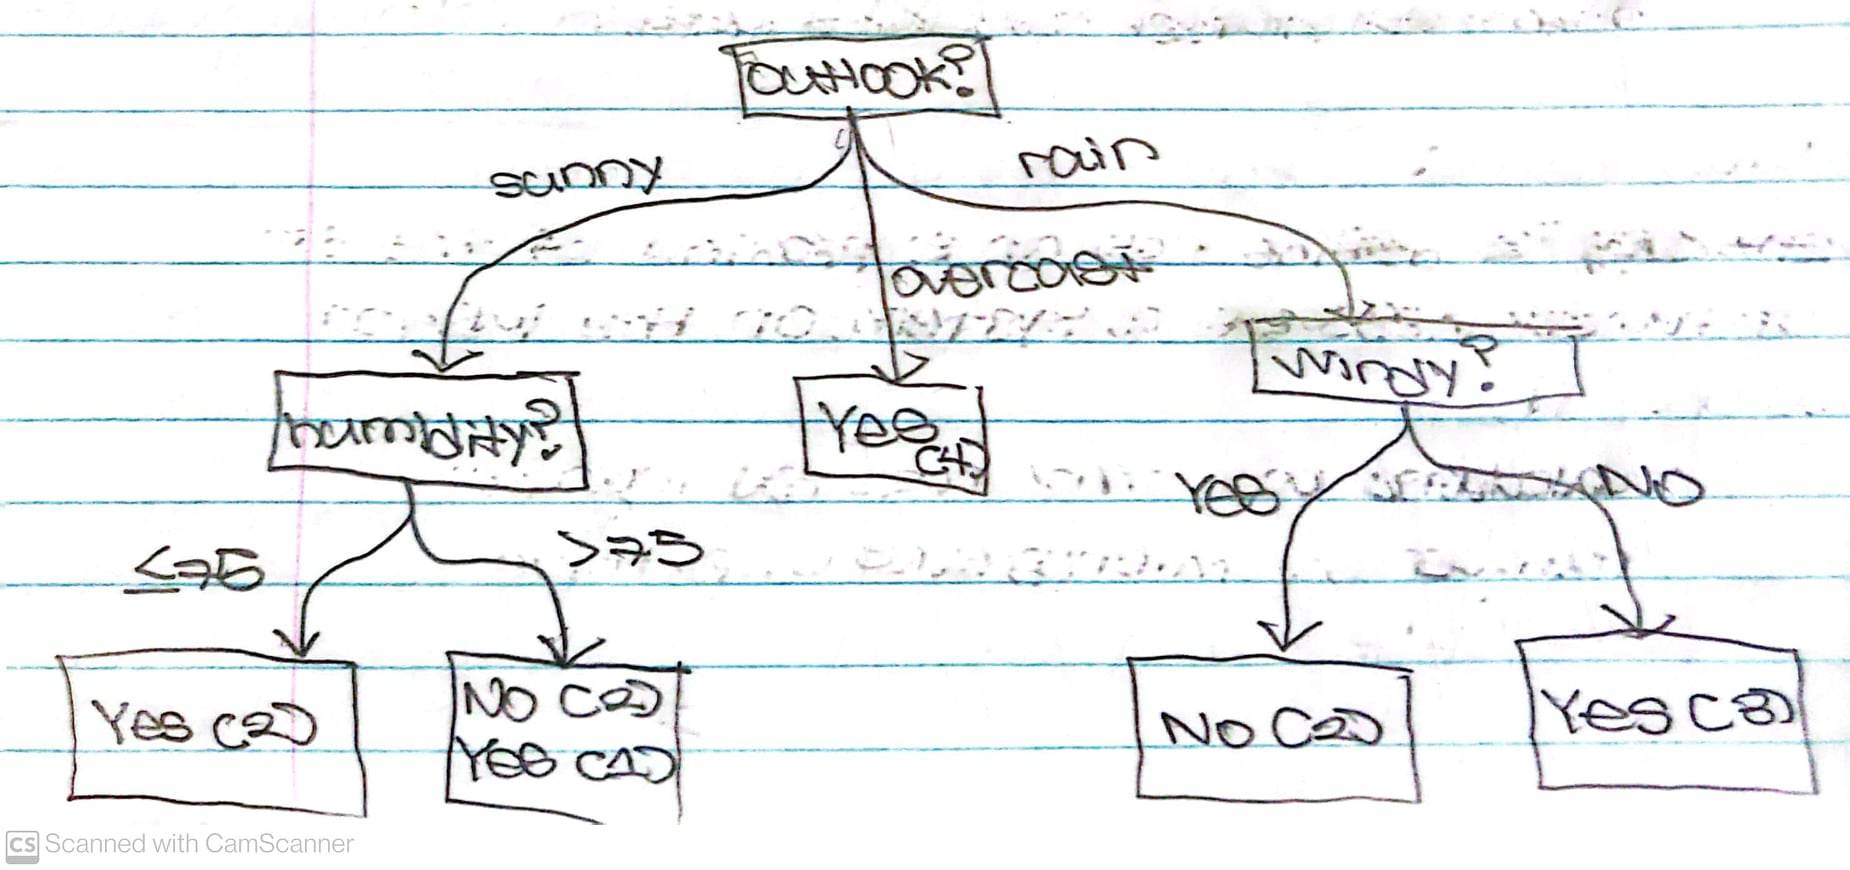 outlook?
sunny
rain
overcast
humidity?
Yes (4)
windy?
≤75
>75
Yes
No
Yes (2)
No (2)
Yes (1)
No (2)
Yes (3)
CS Scanned with CamScanner